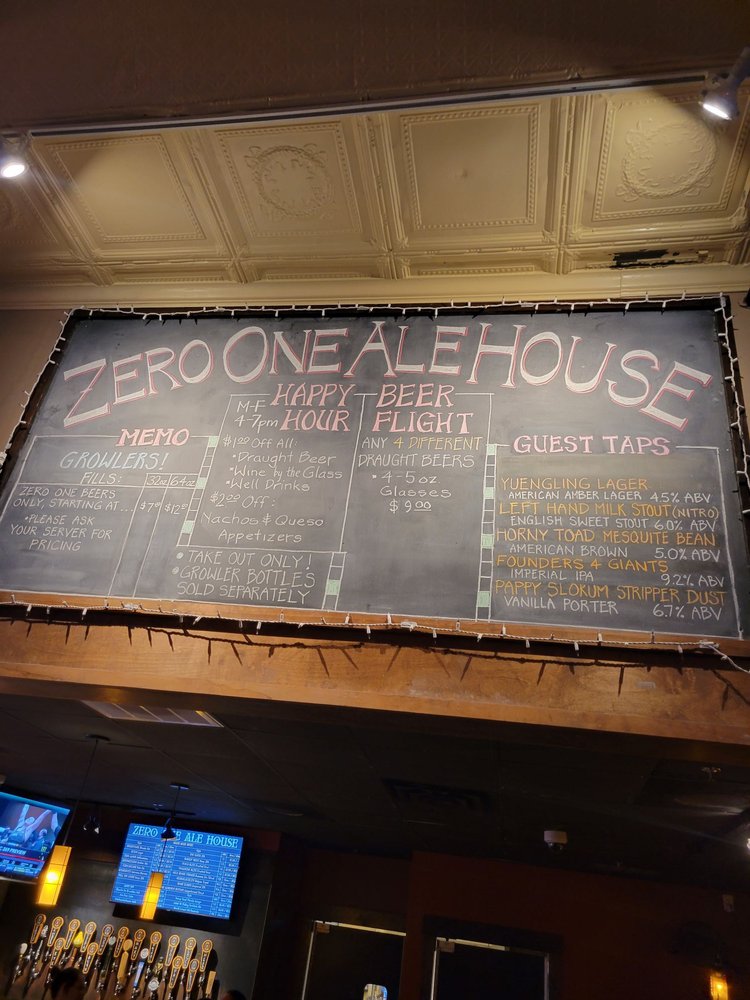 ZERO ONE ALE HOUSE
MEMO
GROWLERS!
FILLS: 32oz 64oz
ZERO ONE BEERS
ONLY, STARTING AT...
•PLEASE ASK
YOUR SERVER FOR
PRICING
M-F
4-7pm
HAPPY
HOUR
$1.00 Off All:
•Draught Beer
•Wine by the Glass
•Well Drinks
$2.00 Off:
Nachos & Queso
Appetizers
• TAKE OUT ONLY!
• GROWLER BOTTLES
SOLD SEPARATELY
BEER
FLIGHT
ANY 4 DIFFERENT
DRAUGHT BEERS
• 4-5oz
Glasses
$9.00
GUEST TAPS
YUENGLING LAGER
AMERICAN AMBER LAGER 4.5% ABV
LEFT HAND MILK STOUT (NITRO)
ENGLISH SWEET STOUT 6.0% ABV
HORNY TOAD MESQUITE BEAN
AMERICAN BROWN 5.0% ABV
FOUNDERS 4 GIANTS
IMPERIAL IPA 9.2% ABV
PAPPY SLOKUM STRIPPER DUST
VANILLA PORTER 6.7% ABV
ZERO ONE ALE HOUSE